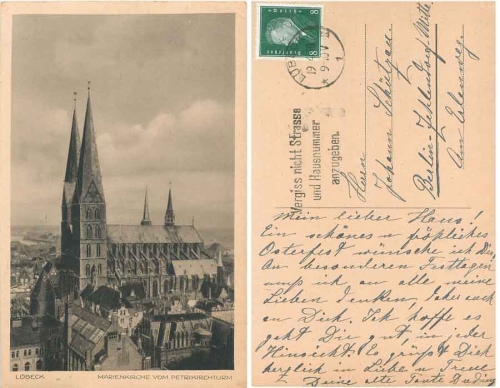 LÜBECK
MARIENKIRCHE VOM PETRIKIRCHTURM
8 8
Deutsches
LÜB
19
9.10 V
1
Vergiss nicht Strasse
und Hausnummer
anzugeben.
Herrn
Johann Schützau
Berlin-Zehlendorf-Mitte
Am
Mein lieber Hans!
Ein schönes u fröhliches
Osterfest wünsche ich Dir.
An besonderen Festtagen
muß ich an alle meine
Lieben denken, daher auch
an Dich. Ich hoffe es
geht Dir gut in jeder
Hinsicht. Es grüßt Dich
herzlich in Liebe u Treue
Deine alte Tante